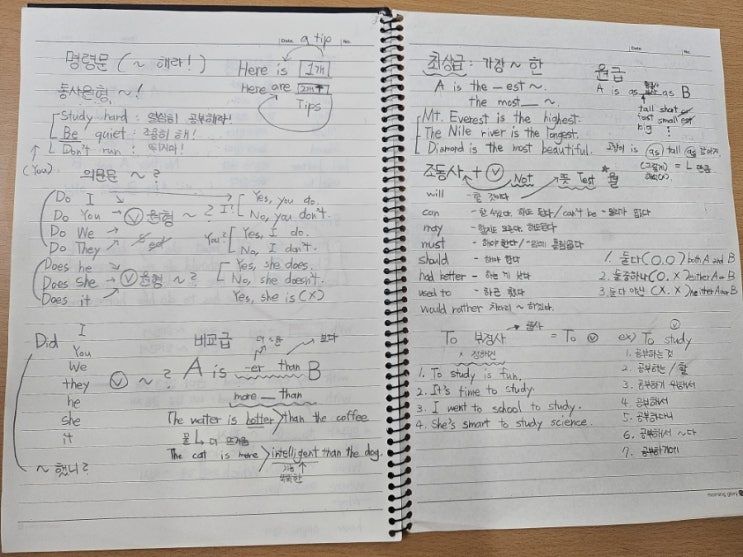 a tip
명령문 (~ 해라!)
Here is 1개
Here are 2개↑
Tips
동사원형 ~!
Study hard : 열심히 공부해라!
Be quiet : 조용히 해!
↑ Don't run : 뛰지마!
(You)
의문문 ~?
Do I
Do You → ⓥ원형 ~?
Do We
Do They
I?
Yes, you do.
No, you don't.
You?
Yes, I do.
No, I don't.
Does he
Does she → ⓥ원형 ~?
Does it
Yes, she does.
No, she doesn't.
Yes, she is (X)
Did
I
You
We
they
he
she
it
ⓥ ~?
~ 했니?
비교급
더 ~한
보다
A is -er than B
more __ than
The water is hotter > than the coffee
물 더 뜨거움
The cat is more > intelligent than the dog.
똑똑한
최상급 : 가장 ~ 한
A is the -est ~.
the most __ ~.
Mt. Everest is the highest.
The Nile river is the longest.
Diamond is the most beautiful.
원급
A is as as B
tall short
fast small
big
as tall as
조동사 + ⓥ
Not
will - 할 것이다
can
can't be
may
must - 해야 한다 /
should - 해야 한다
had better - 하는 게 낫다
used to - 하곤 했다
would rather 차라리 ~ 하겠다.
1. 둘다 (O.O) both A and B
2. 둘중하나 (O.X) either A or B
3. 둘다 아닌 (X.X) neither A nor B
To 부정사 = To ⓥ ex) To study
1. To study is fun.
2. It's time to study.
3. I went to school to study.
4. She's smart to study science.
1. 공부하는 것
2. 공부하는 / 할
3. 공부하기 위해서
4. 공부해서
5. 공부하다니
6. 공부해서 ~다
7. 공부하기에